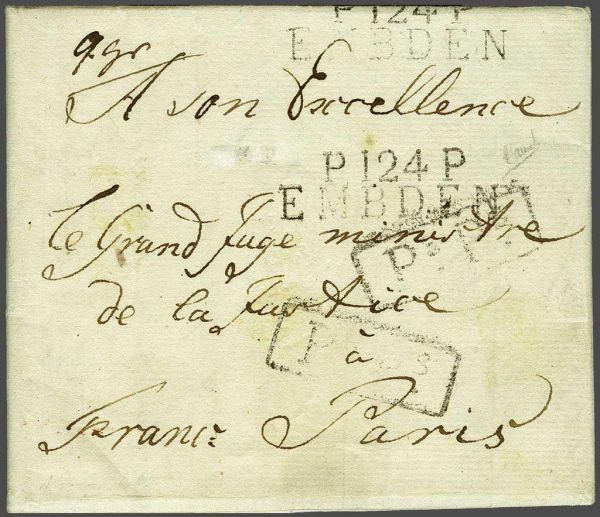 P 124 P
EMBDEN
A son Excellence
P 124 P
EMBDEN
le Grand Juge ministre
de la Justice
à
Franc: Paris